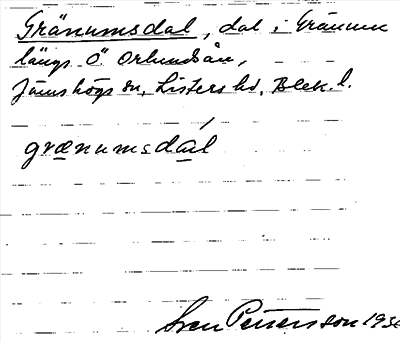 Gränumsdal, dal i Gränum
längs Ö Orlundsån,
Jämshögs sn, Listers hd, Blek. l.
grænumsda̱l
Sven Pettersson 193